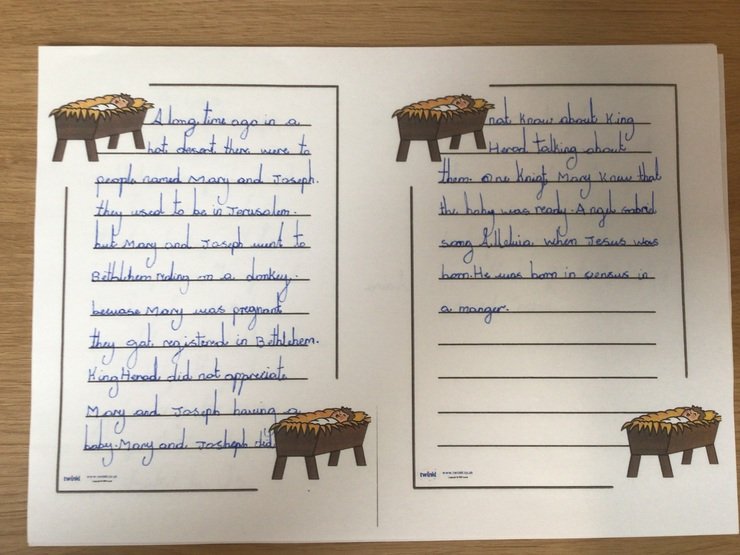 A long time ago in a
hot desert there were to
people named Mary and Joseph.
they used to be in Jerusalem.
but Mary and Joseph went to
Bethlhem riding on a donkey.
becuase Mary was pregnant
they got registered in Bethlhem.
King Herod did not appreciate
Mary and Joseph having a
baby. Mary and Josheph did
twinkl www.twinkl.co.uk
not know about King
Herod talking about
them. One Knigt Mary Knew that
the baby was ready. Angel Gabriel
sang Alleluia when Jesus was
born. He was born in census in
a manger.
twinkl www.twinkl.co.uk